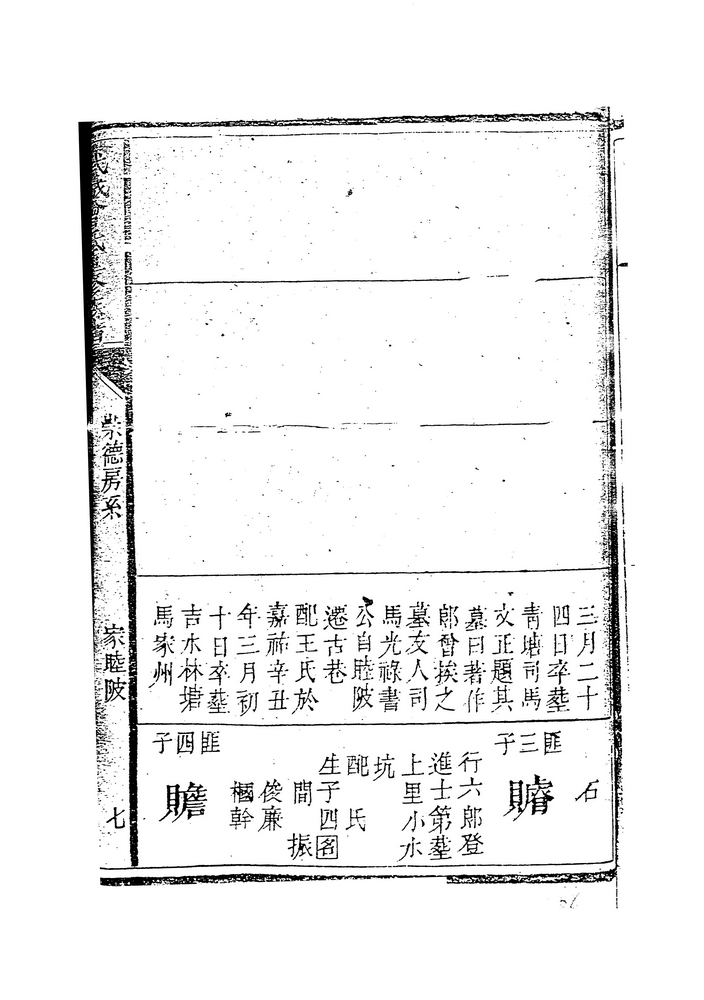 三月二十
四日卒葬
青塘司馬
文正題其
墓曰著作
郎曾挨之
墓友人司
馬光祿書
公自睦陂
遷古巷
配王氏於
嘉祐辛丑
年三月初
十日卒葬
吉水林塘
馬家州
石
匪三子
贖
行六郎登
進士第葬
上里小水
坑
配　氏
生子四名
間　振
俊廉
槶幹
匪四子
贍
崇德房系
家睦陂
七